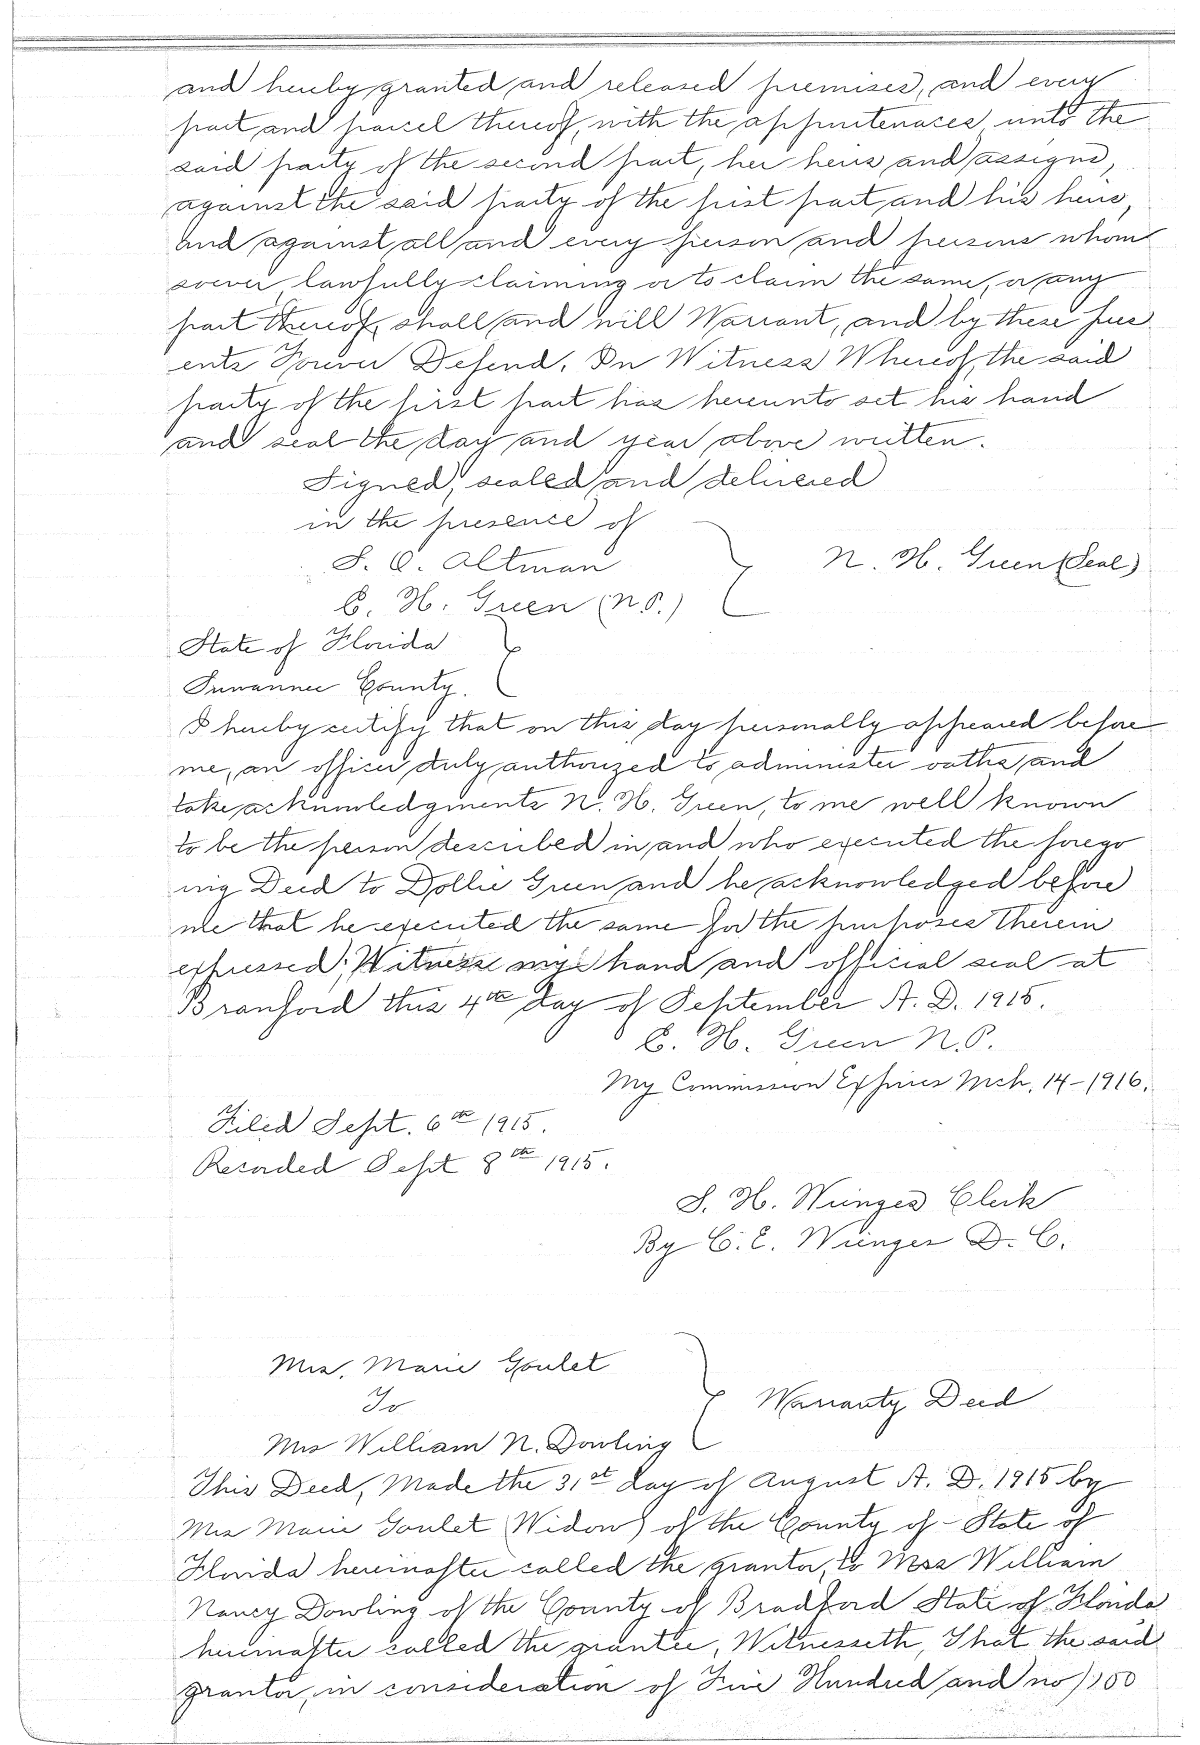 and hereby granted and released premises, and every
part and parcel thereof, with the appurtenaces unto the
said party of the second part, her heirs and assigns,
against the said party of the first part and his heirs,
and against all and every person and persons whom
soever lawfully claiming or to claim the same, or any
part thereof, shall and will Warrant, and by these pres
ents Forever Defend. In Witness Whereof, the said
party of the first part has hereunto set his hand
and seal the day and year above written.
Signed, sealed and delivered
in the presence of
S. O. Altman
N. H. Green (Seal)
C. H. Green (N.P.)
State of Florida
Suwannee County.
I hereby certify that on this day personally appeared before
me, an officer duly authorized to administer oaths and
take acknowledgments N. H. Green, to me well known
to be the person described in and who executed the forego
ing Deed to Dollie Green and he acknowledged before
me that he executed the same for the purposes therein
expressed; Witness my hand and official seal at
Branford this 4th day of September A. D. 1915.
C. H. Green N.P.
My Commission Expires Mch. 14-1916.
Filed Sept. 6th 1915.
Recorded Sept 8th 1915.
S. H. Clerk
By C. E. D. C.
Mrs. Marie Goulet
To
Warranty Deed
Mrs William N. Dowling
This Deed, Made the 31st day of August A. D. 1915 by
Mrs Marie Goulet (Widow) of the County of - State of
Florida hereinafter called the grantor, to Mrs William
Nancy Dowling of the County of Bradford State of Florida
hereinafter called the grantee, Witnesseth, That the said
grantor, in consideration of Five Hundred and no/100